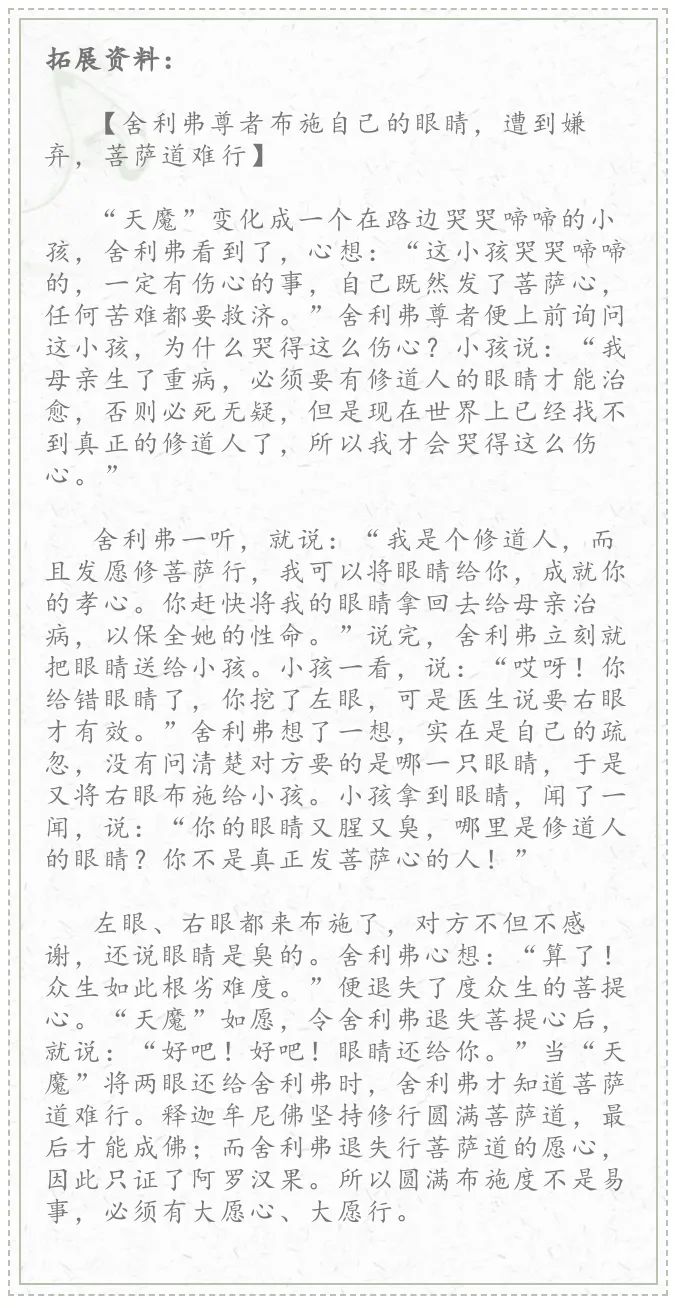 拓展资料：
【舍利弗尊者布施自己的眼睛，遭到嫌
弃，菩萨道难行】
“天魔”变化成一个在路边哭哭啼啼的小
孩，舍利弗看到了，心想：“这小孩哭哭啼啼
的，一定有伤心的事，自己既然发了菩萨心，
任何苦难都要救济。”舍利弗尊者便上前询问
这小孩，为什么哭得这么伤心？小孩说：“我
母亲生了重病，必须要有修道人的眼睛才能治
愈，否则必死无疑，但是现在世界上已经找不
到真正的修道人了，所以我才会哭得这么伤
心。”
舍利弗一听，就说：“我是个修道人，而
且发愿修菩萨行，我可以将眼睛给你，成就你
的孝心。你赶快将我的眼睛拿回去给母亲治
病，以保全她的性命。”说完，舍利弗立刻就
把眼睛送给小孩。小孩一看，说：“哎呀！你
给错眼睛了，你挖了左眼，可是医生说要右眼
才有效。”舍利弗想了一想，实在是自己的疏
忽，没有问清楚对方要的是哪一只眼睛，于是
又将右眼布施给小孩。小孩拿到眼睛，闻了一
闻，说：“你的眼睛又腥又臭，哪里是修道人
的眼睛？你不是真正发菩萨心的人！”
左眼、右眼都来布施了，对方不但不感
谢，还说眼睛是臭的。舍利弗心想：“算了！
众生如此根劣难度。”便退失了度众生的菩提
心。“天魔”如愿，令舍利弗退失菩提心后，
就说：“好吧！好吧！眼睛还给你。”当“天
魔”将两眼还给舍利弗时，舍利弗才知道菩萨
道难行。释迦牟尼佛坚持修行圆满菩萨道，最
后才能成佛；而舍利弗退失行菩萨道的愿心，
因此只证了阿罗汉果。所以圆满布施度不是易
事，必须有大愿心、大愿行。